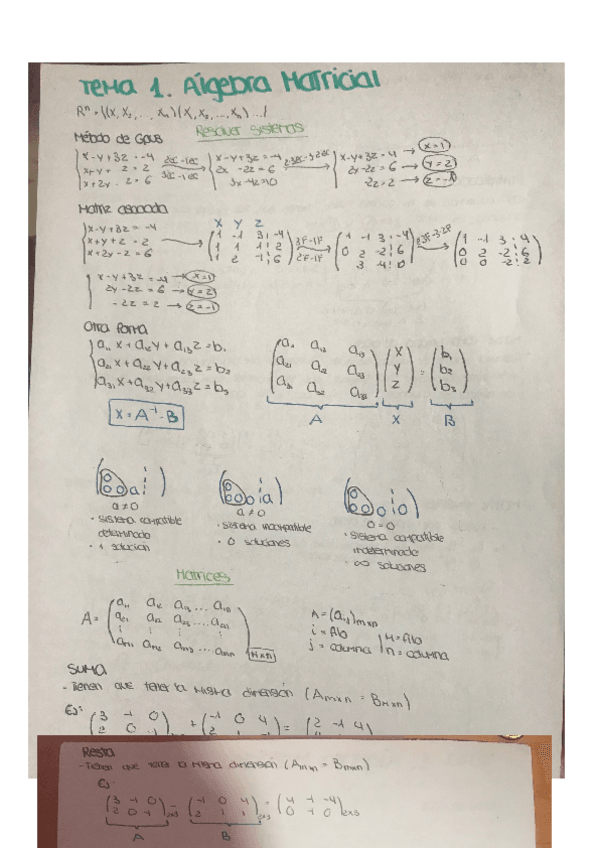 TEMA 1. Álgebra Matricial
Rⁿ = {(x₁, x₂, ..., xₙ) / (x₁, x₂, ..., xₙ) ...}
Resolver sistemas
Método de Gaus
x-y+3z=-4
x+y+z=2
x+2y-z=6
2ec-1ec
3ec-1ec
x-y+3z=-4
2y-2z=6
3y-4z=10
2·3ec-3·2ec
x-y+3z=-4 → x=1
2y-2z=6 → y=2
-2z=2 → z=-1
Matriz asociada
x-y+3z=-4
x+y+z=2
x+2y-z=6
X Y Z
1 -1 3 -4
1 1 1 2
1 2 -1 6
3F-1F
2F-1F
1 -1 3 -4
0 2 -2 6
3 -4 0
1 -1 3 -4
0 2 -2 6
0 0 -2 2
x-y+3z=-4 → x=1
2y-2z=6 → y=2
-2z=2 → z=-1
Otra forma
a₁₁x+a₁₂y+a₁₃z=b₁
a₂₁x+a₂₂y+a₂₃z=b₂
a₃₁x+a₃₂y+a₃₃z=b₃
a₁₁ a₁₂ a₁₃ x b₁
a₂₁ a₂₂ a₂₃ y = b₂
a₃₁ a₃₂ a₃₃ z b₃
A X B
X = A⁻¹·B
a≠0
· Sistema compatible
determinado
· 1 solución
a≠0
· Sistema incompatible
· 0 soluciones
0=0
· Sistema compatible
indeterminado
· ∞ soluciones
Matrices
A=
a₁₁ a₁₂ a₁₃ ... a₁ₙ
a₂₁ a₂₂ a₂₃ ... a₂ₙ
aₘ₁ aₘ₂ aₘ₃ ... aₘₙ
mxn
A=(aᵢⱼ)mxn
i = fila
j = columna
m = fila
n = columna
SUMA
- Tienen que tener la misma dimensión (Amxn = Bmxn)
Ej:
(3 -1 0) + (-1 0 4) = (2 -1 4)
Resta
- Tienen que tener la misma dimensión (Amxn = Bmxn)
Ej:
(3 -1 0) - (-1 0 4) = (4 -1 -4)
(2 0 -1)2x3 (2 1 1)2x3 (0 -1 0)2x3
A B